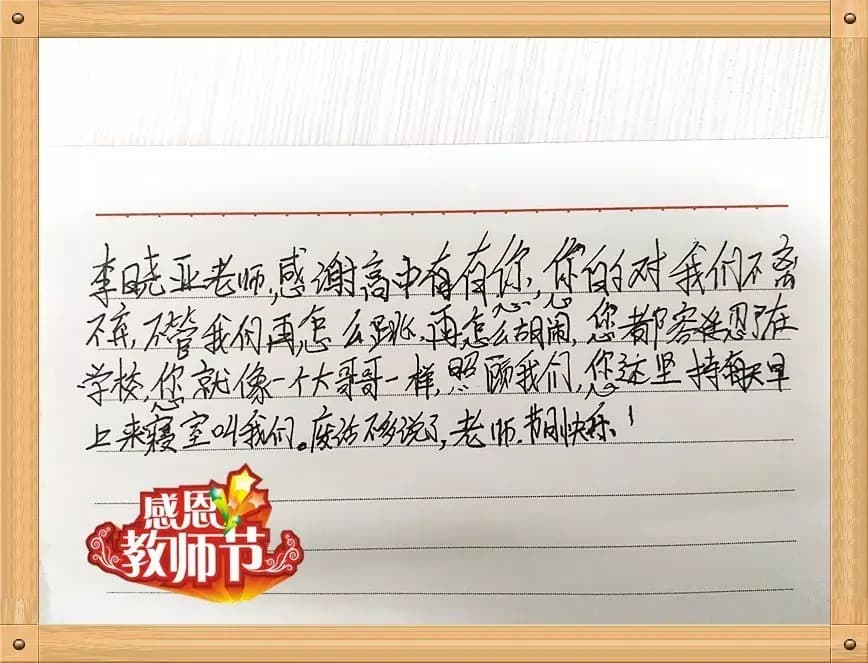 李晓亚老师,感谢高中有有您,您的对我们不离
不弃,不管我们再怎么跳.再怎么胡闹,您都容忍了在
学校,您就像一个大哥哥一样,照顾我们,您还坚持每天早
上来寝室叫我们。废话不多说了,老师.节日快乐!
感恩
教师节